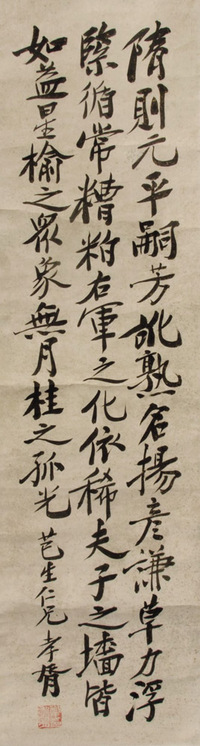 隋則元平嗣芳訛熟名揚彥謙草力浮
緊循常糟粕右軍之化依稀夫子之墻皆
如益星榆之眾象無月桂之孤光
芭生仁兄 孝胥